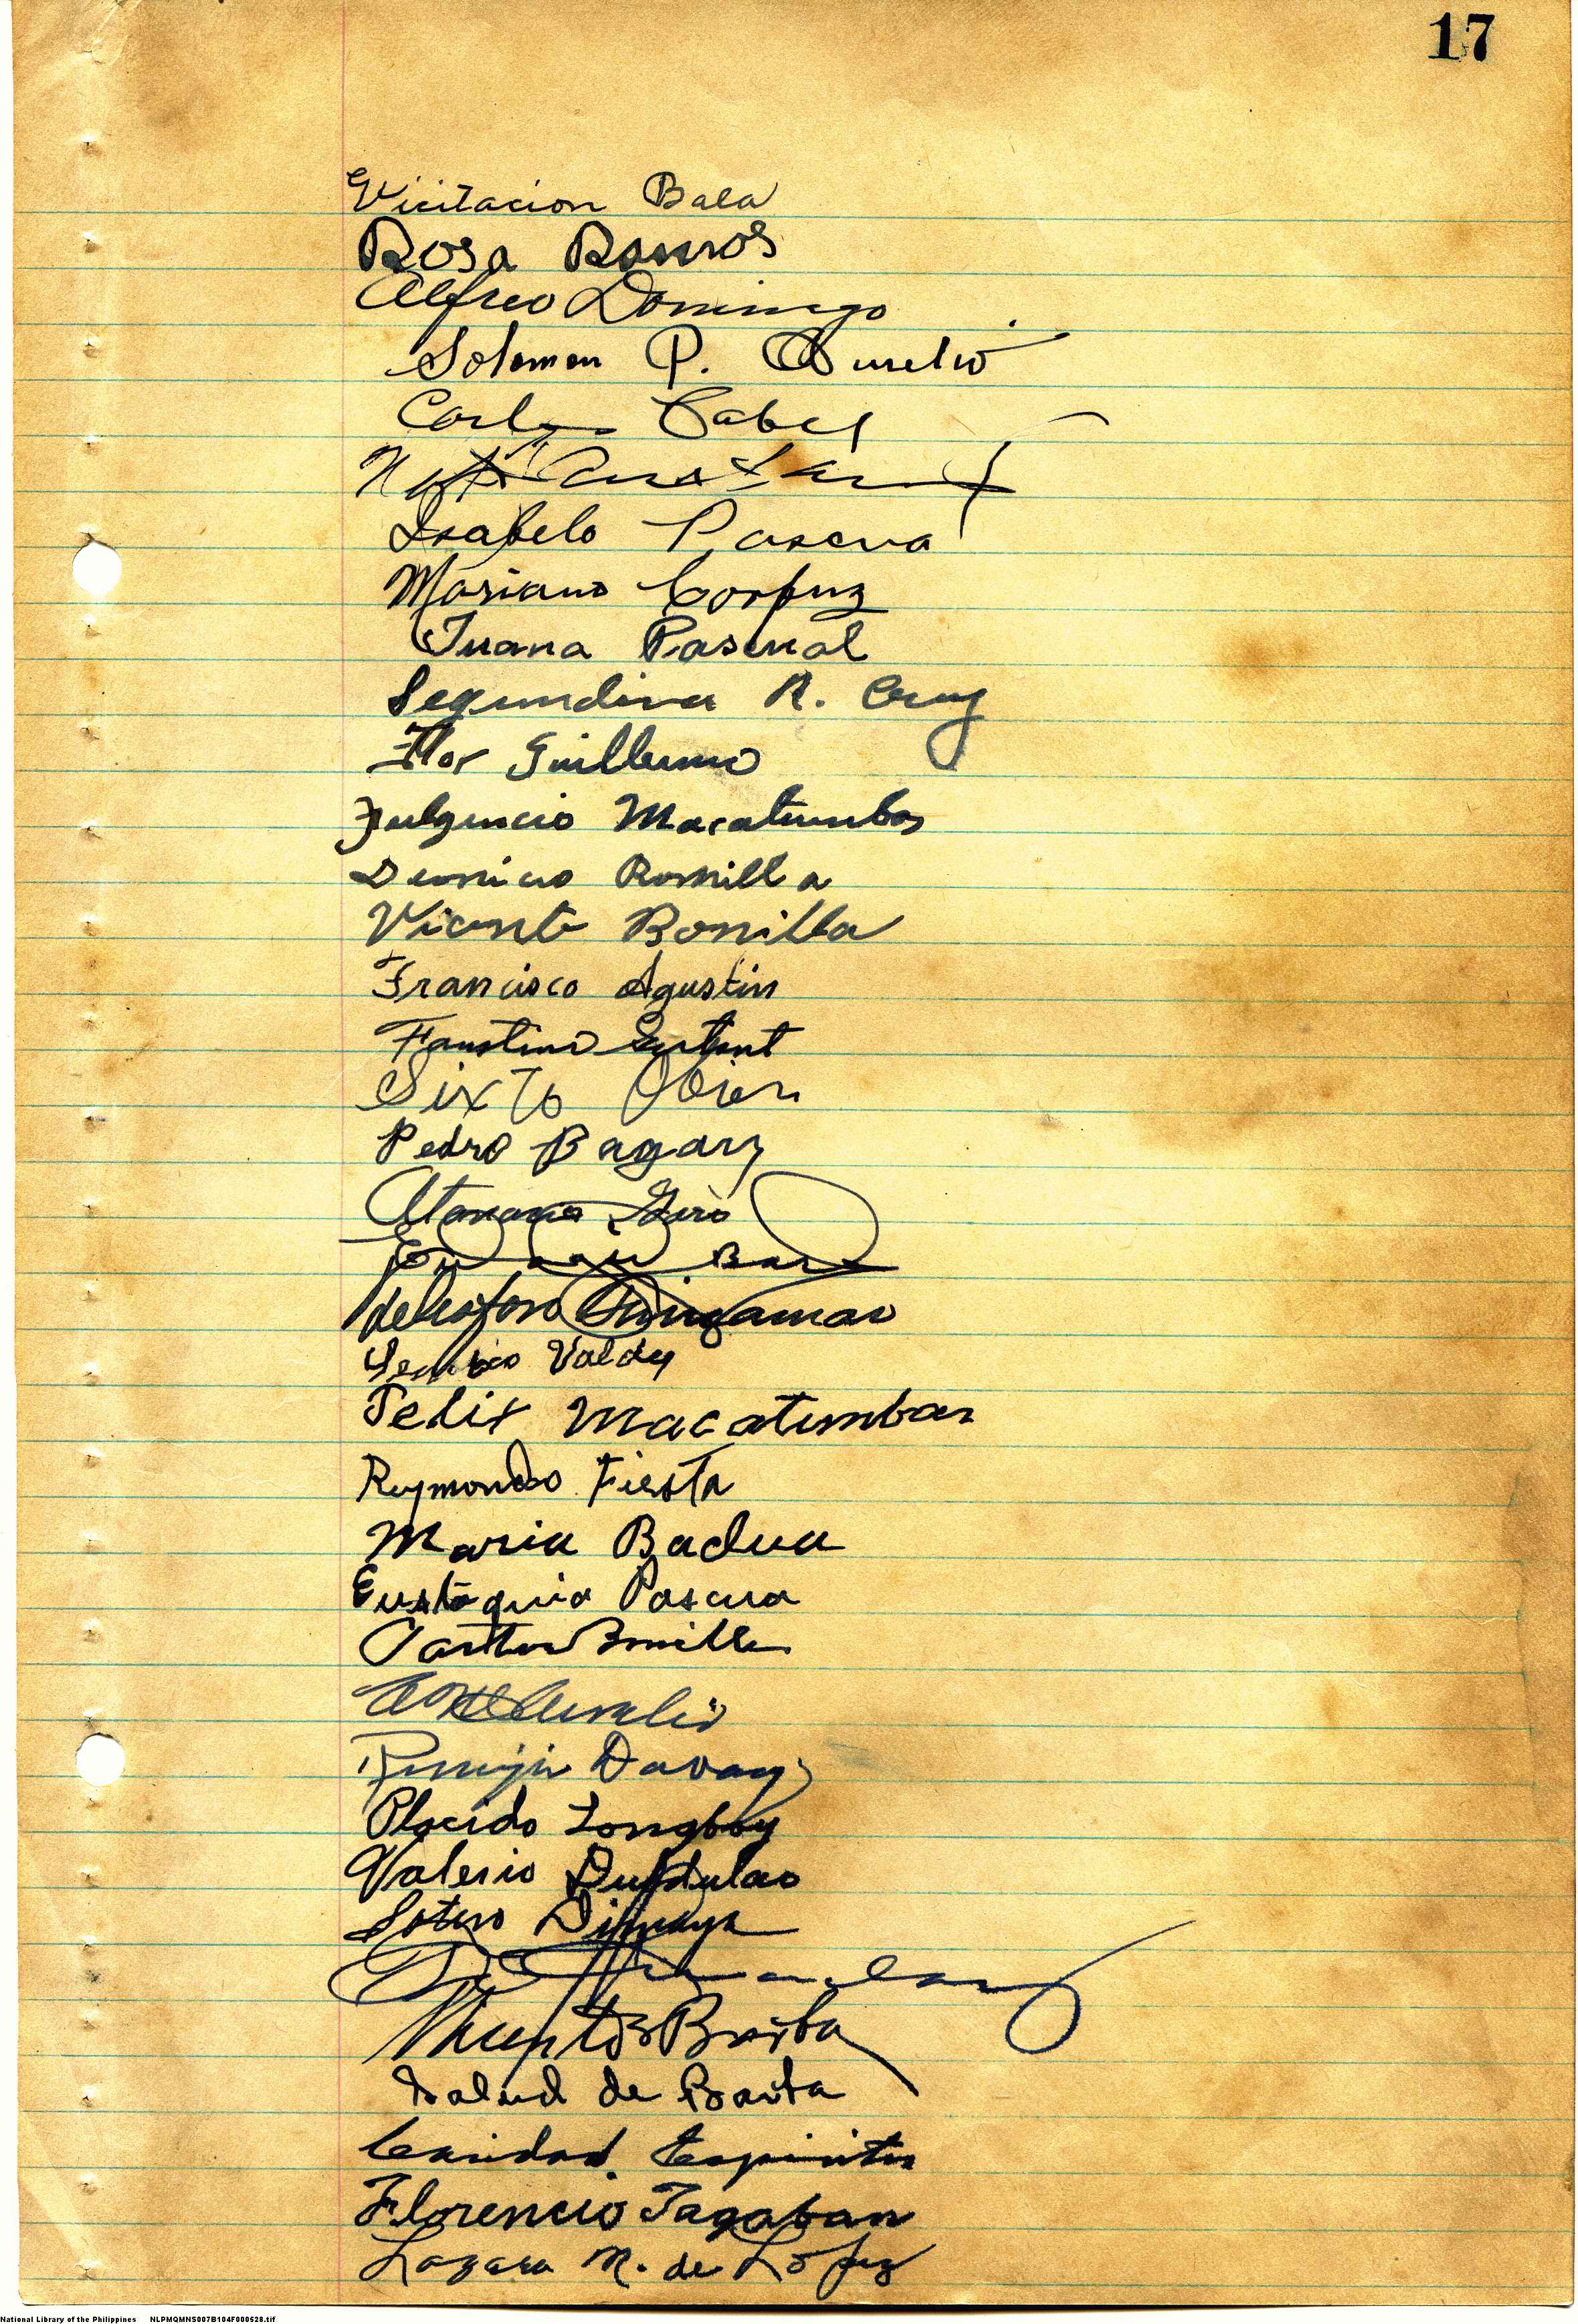 17
Vicitacion Bala
Rosa Ramos
Alfreo Domingo
Solomon P. Aurelio
Carlos Cabel
Isabelo Pascua
Mariano Corpuz
Juana Pascual
Segundina R. Cruz
Flor Guillermo
Fulgencio Macatumbas
Ronilla
Vicente Bonilla
Francisco Agustin
Faustino
Sixto Obien
Pedro Bagay
Delesforo Guingamao
Valdez
Felix Macatumbas
Raymondo Fiesta
Maria Badua
Eustaquia Pascua
Pastor Bonilla
Remigio Davay
Placido Longboy
Valerio Duldulao
Sotero Dimaya
Vicente Barba
Salud de Barba
Caridad Espiritu
Florencio Tagaban
Lazara N. de López
National Library of the Philippines NLPMQMNS007B104F000528.tif